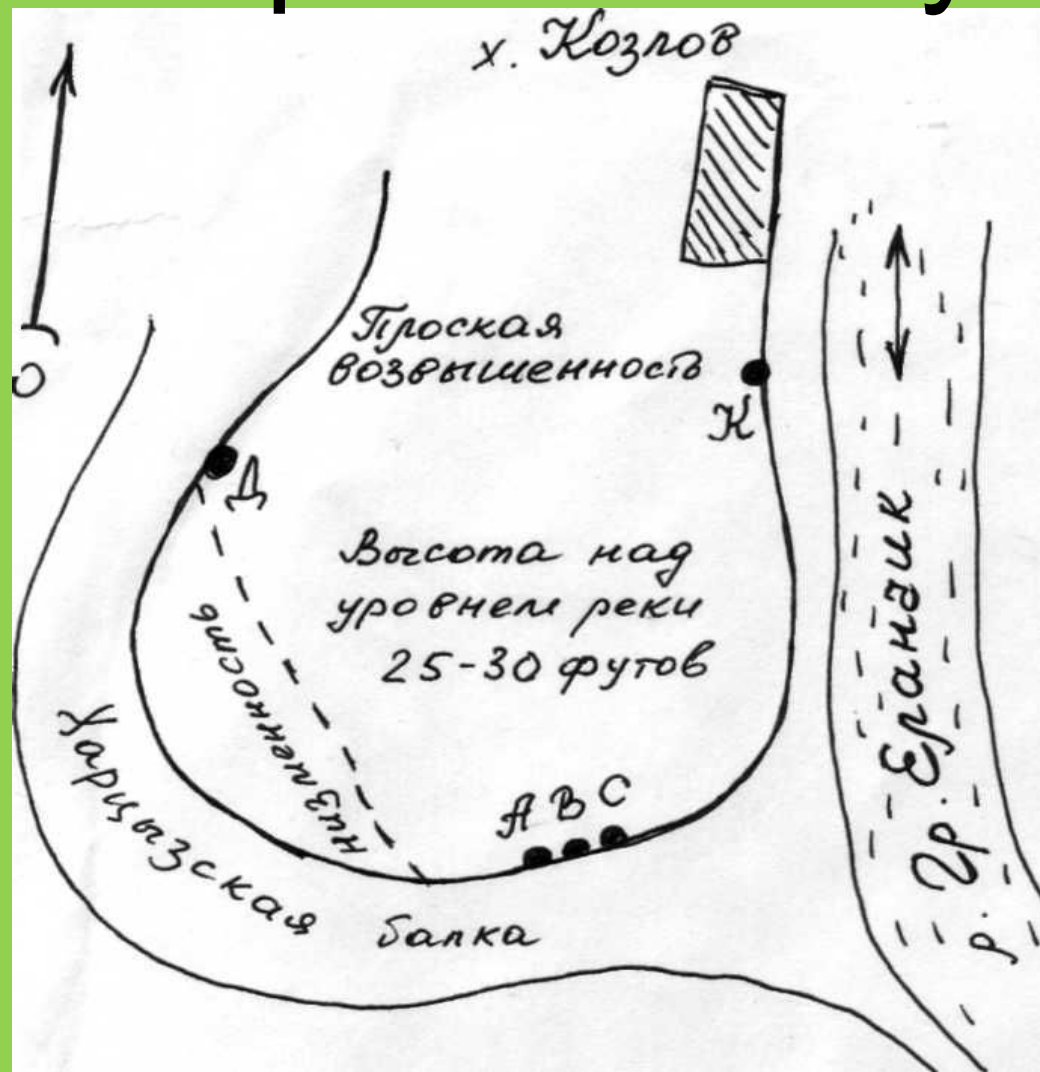 х. Козлов
Плоская
возвышенность
К
Д
Высота над
уровнем реки
25-30 футов
низменность
А В С
Харцызская балка
р. Гр. Еланчик